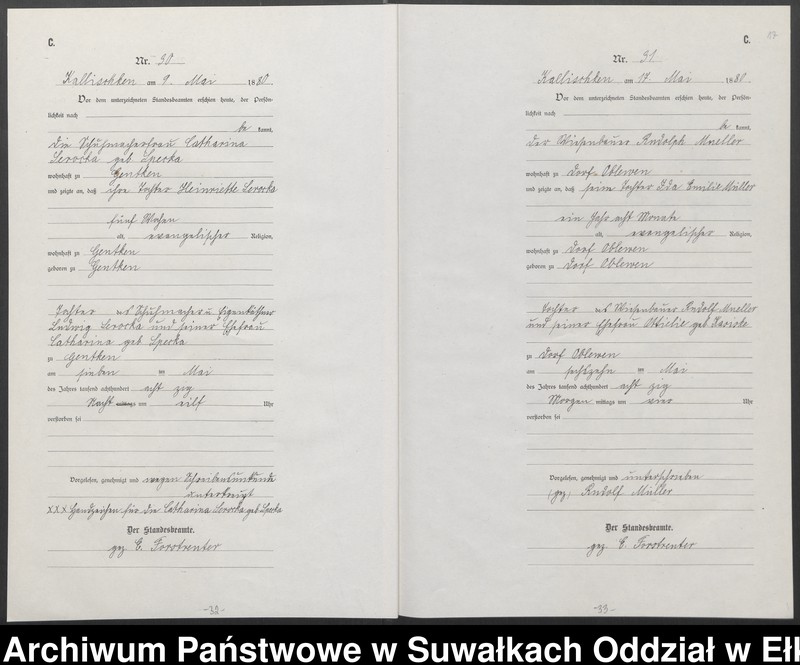 C.
Nr. 30
Kallischken am 9. Mai 1880
Vor dem unterzeichneten Standesbeamten erschien heute, der Persön-
lichkeit nach
be kannt,
die Schuhmacherfrau Catharina
Serocka geb. Specka
wohnhaft zu Gentken
und zeigte an, daß ihre Tochter Heinriette Serocka
fünf Wochen
alt, evangelischer Religion,
wohnhaft zu Gentken
geboren zu Gentken
Tochter des Schuhmacher u Eigenkäthner
Ludwig Serocka und seiner Ehefrau
Catharina geb. Specka
zu Gentken
am sieben ten Mai
des Jahres tausend achthundert acht zig
Nacht mittags um eilf Uhr
verstorben sei
Vorgelesen, genehmigt und wegen Schreibensunkunde
unterkreuzt
XXX Handzeichen für die Catharina Serocka geb. Specka
Der Standesbeamte.
gez E. Forstreuter
-32-
C. 17
Nr. 31
Kallischken am 17. Mai 1880.
Vor dem unterzeichneten Standesbeamten erschien heute, der Persön-
lichkeit nach
be kannt,
der Wiesenbauer Rudolph Mueller
wohnhaft zu Dorf Oblewen
und zeigte an, daß seine Tochter Ida Emilie Müller
ein Jahr acht Monate
alt, evangelischer Religion,
wohnhaft zu Dorf Oblewen
geboren zu Dorf Oblewen
Tochter des Wiesenbauer Rudolf Mueller
und seiner Ehefrau Ottilie geb.
zu Dorf Oblewen
am sechszehn ten Mai
des Jahres tausend achthundert acht zig
Morgen mittags um vier Uhr
verstorben sei
Vorgelesen, genehmigt und unterschrieben
(gez) Rudolf Müller
Der Standesbeamte.
gez. E. Forstreuter
-33-
Archiwum Państwowe w Suwałkach Oddział w Ełk